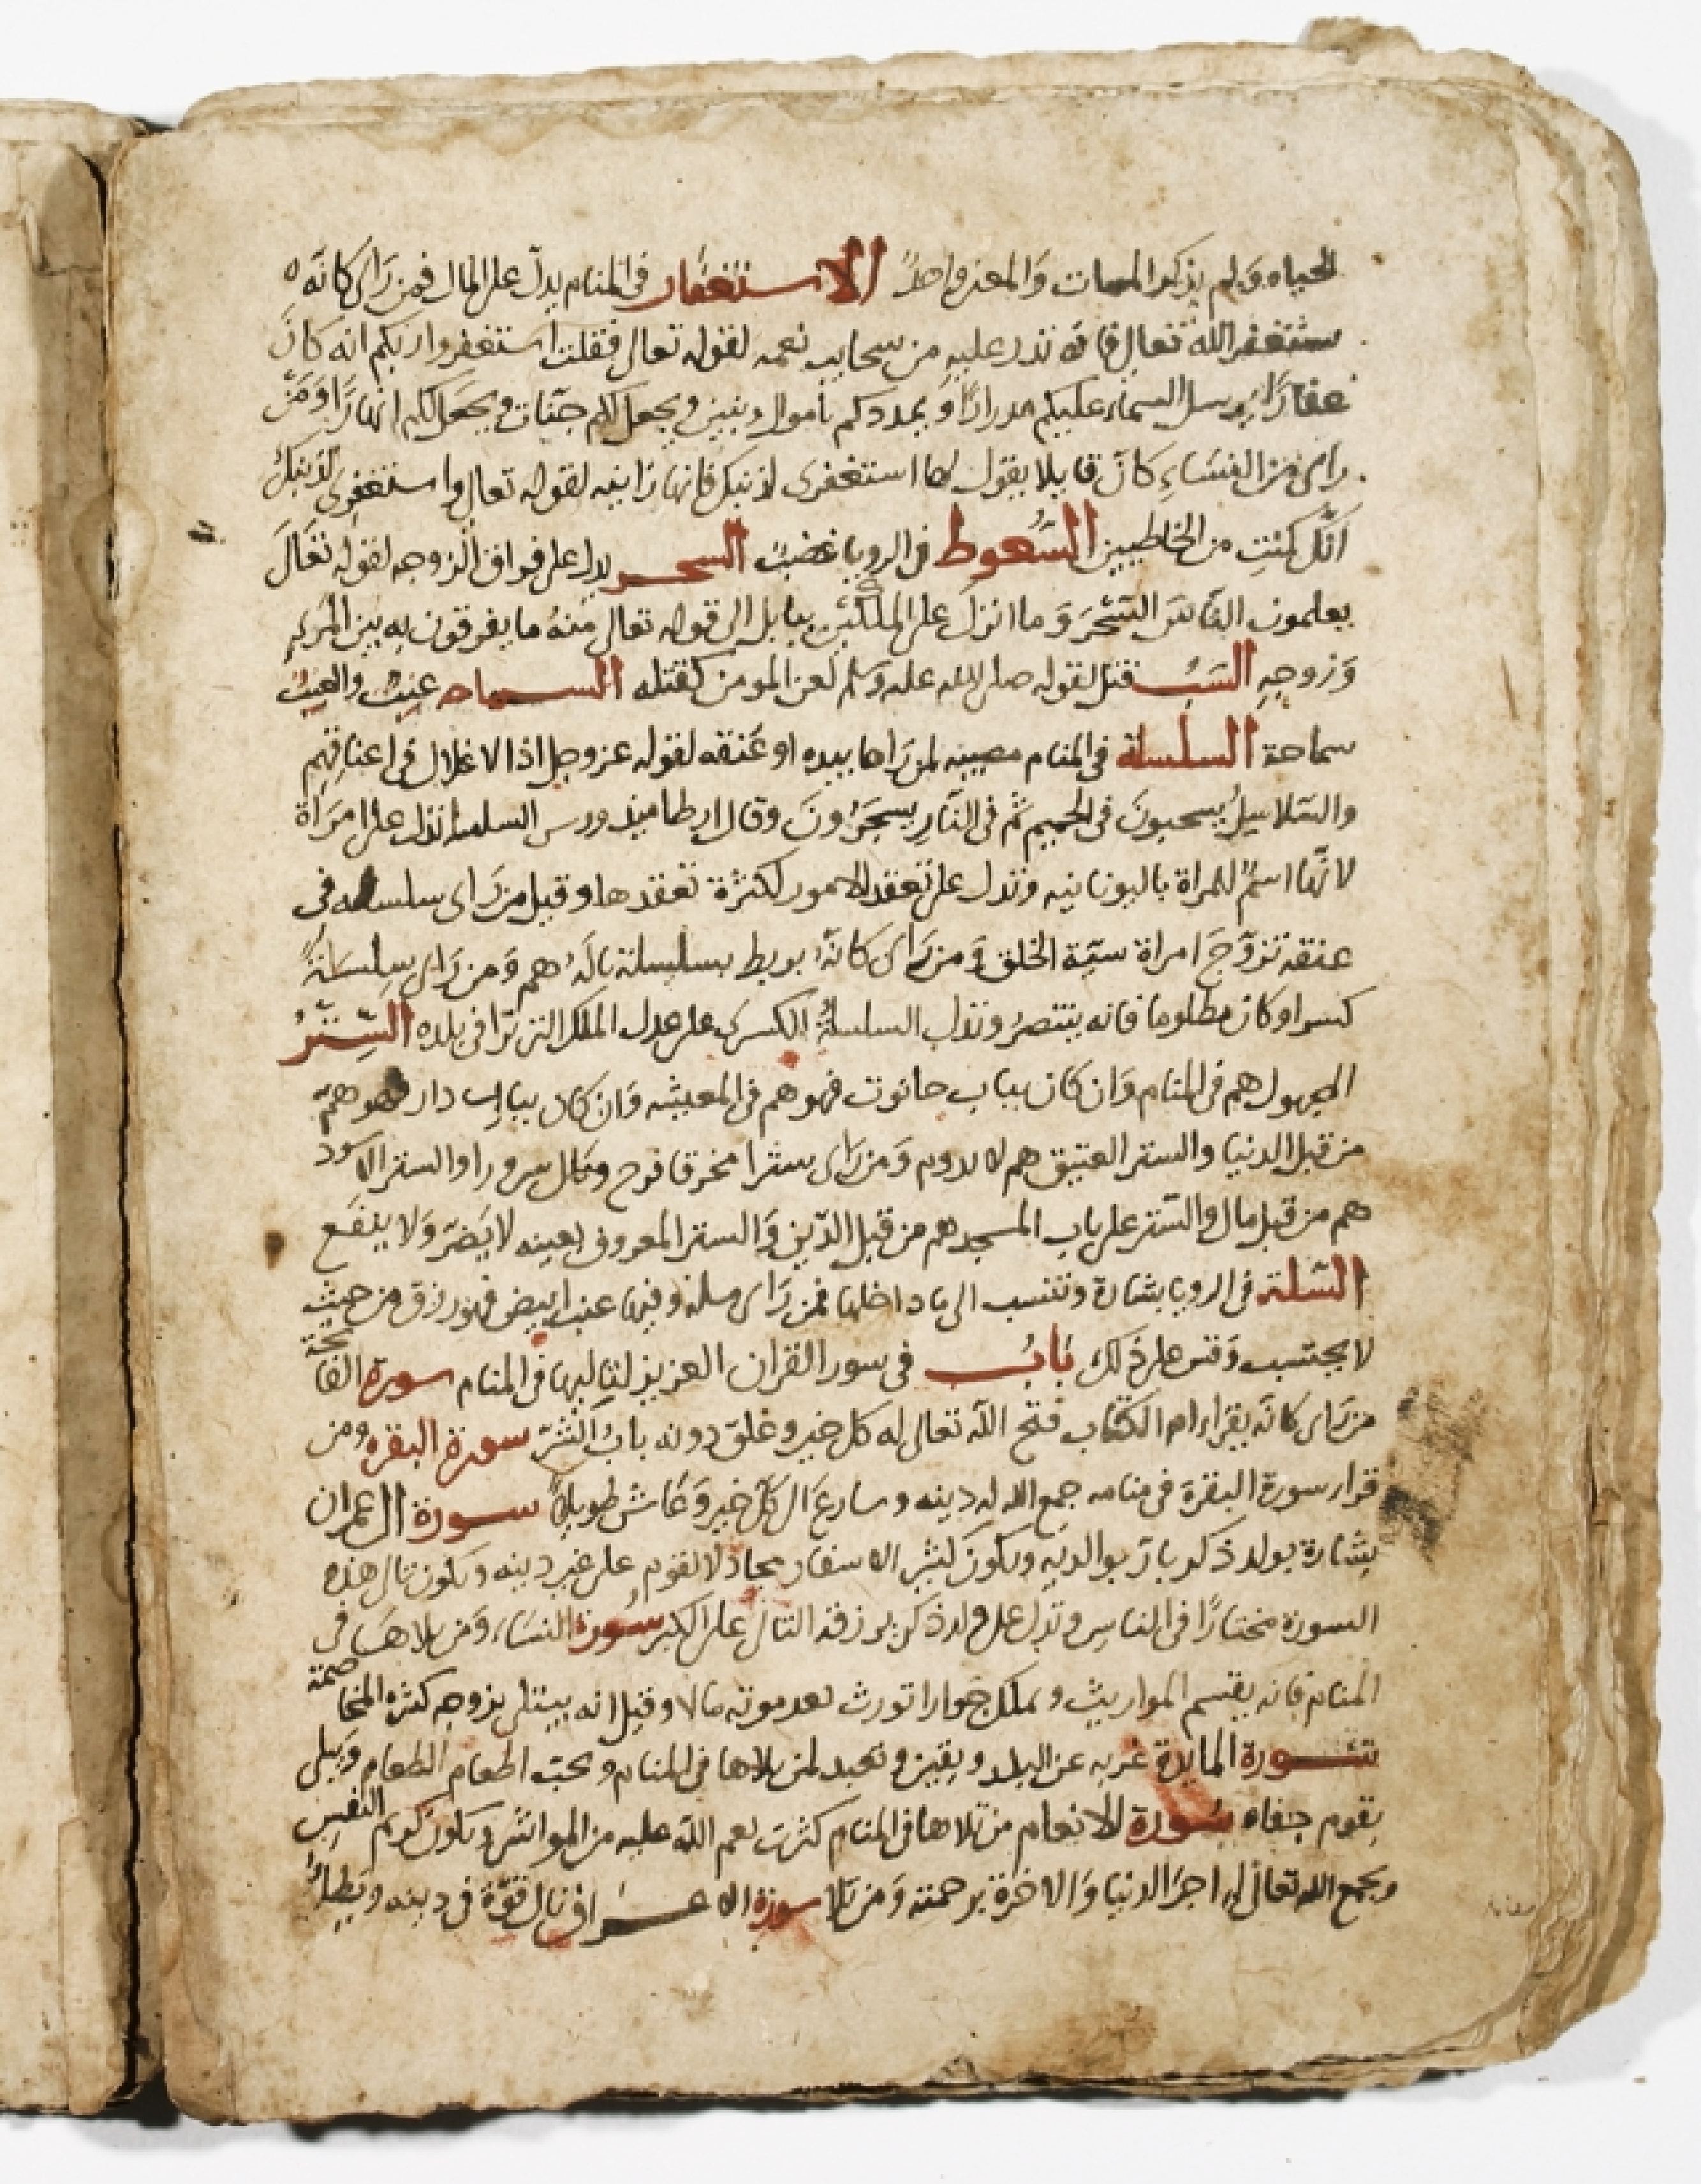 الحياه ولم يذكر الممات والمعنى واحدً الاستغفار فى المنام يدل على المال فمن رَاى كانَه
ستغفر الله تعالى فانه تدر عليه من سحايب نعمه لقوله تعالى فقلت استغفروا ربكم انه كانَ
غفارًا يرسل السماء عليكم مدرارًا وَيمددكم باموال وبنين ويجعل لكم جنّات ويجعل لكم انهارًا وَمَن
راى من النسَاءِ كانَ قايلا يقول لها استغفرى لذنبكِ فانها زانيه لقوله تعالى واستغفرى لذنبكِ
انّكِ كنتِ من الخاطيين السَّعوط فى الرويا غضبٌ السحر يدل على فراق الزوجه لقوله تعَالَى
يعلمون الناسَ السّحْرَ وَما انزلَ على الملكَين ببابل الى قوله تعالى منهُ ما يفرقون به بين المَرءِ
وَزوجهِ السَبُ قتل لقوله صلى الله عليه وَسلم لعن المومن كقتله السماحه عنبٌ والعنبُ
سماحة السلسلة فى المنام مصيبه لمن رَاها بيده او عنقه لقوله عز وجل اذ الاغلال فى اعناقِهِم
والسّلاسِلُ يسحبونَ فى الحميم ثُم فى النّارِ يسجَرُونَ وقال ارطاميدورس السلسله تدل على امرَاة
لانّها اسمٌ للمراة باليونانيه وتدل على تعقد الامور لكثرة تعقدها وقيل من رَاى سلسله فى
عنقه تزوّجَ امراة سيّة الخلق وَمن رَاى كَانّهُ يربط بسلسلة نالَهُ همٌ وَمن رَاى سِلسلةً
كسرا وكان مظلوما فانه ينتصرُ وتدل السلسلةُ لكسرى على عدل الملك الذى ترا فى بلده السِّترُ
المجهول هم فى المنام وَان كان بباب حانوت فهو هم فى المعيشه وَان كان بباب دار فهو همٌ
من قبل الدنيا والستر العتيق هم لا يدوم وَمن رَاى سترا مخرقا فرح ونال سرورا والستر الاسود
هم من قبل مال والسّتر على باب المسجد هم من قبل الدّين وَالستر المعروف بعينه لا يَضرّ وَلا ينفَع
السّلة فى الرويا بشارة وتنسب الى ما داخلها فمن رَاى سله وفيها عنب ابيض فهو رزق من حيث
لا يحتسب وَقس على ذلك بابُ فى سور القران العزيز لتاليها فى المنام سورة الفاتحة
من رَاى كانّه يقرا ام الكتاب فتح اللّه تعالى له كل خير وغلق دونه بابُ الشرّ سورة البقره ومن
قرا سورة البقرة فى منامه جمع الله له دينه وسارعَ الى كلّ خير وَعَاش طويلاً سورة ال عمران
بشارة بولد ذكر بارّ بوالديه ويكون كثير الاسفار مجادلا لقوم على غير دينه ويكون تالى هذه
السورة مختارًا فى الناس وتدل على ولد ذكر يرزقه التالى على الكبر سُورة النسَاء وَمن تلاهَا فى
المنام فانه يقسم المواريث ويملك جوارا تورث بعد موته مالا وقيل انه يبتلى بزوجه كثيره المخاصمة
سورة المايدة غربه عن البلد ويقين وتعبد لمن تلاها فى المنام ويحب اطعام الطعام ويَبلى
بقوم جفاه سورة الانعام من تلاها فى المنام كثرت نعم اللّه عليه من المواشى ويكون كريم النفسِ
ويجمع الله تعالى له اجرَ الدنيا وَالاخرة برحمته وَمن تلا سورة الاعراف نال قوّة فى دينه ويطا